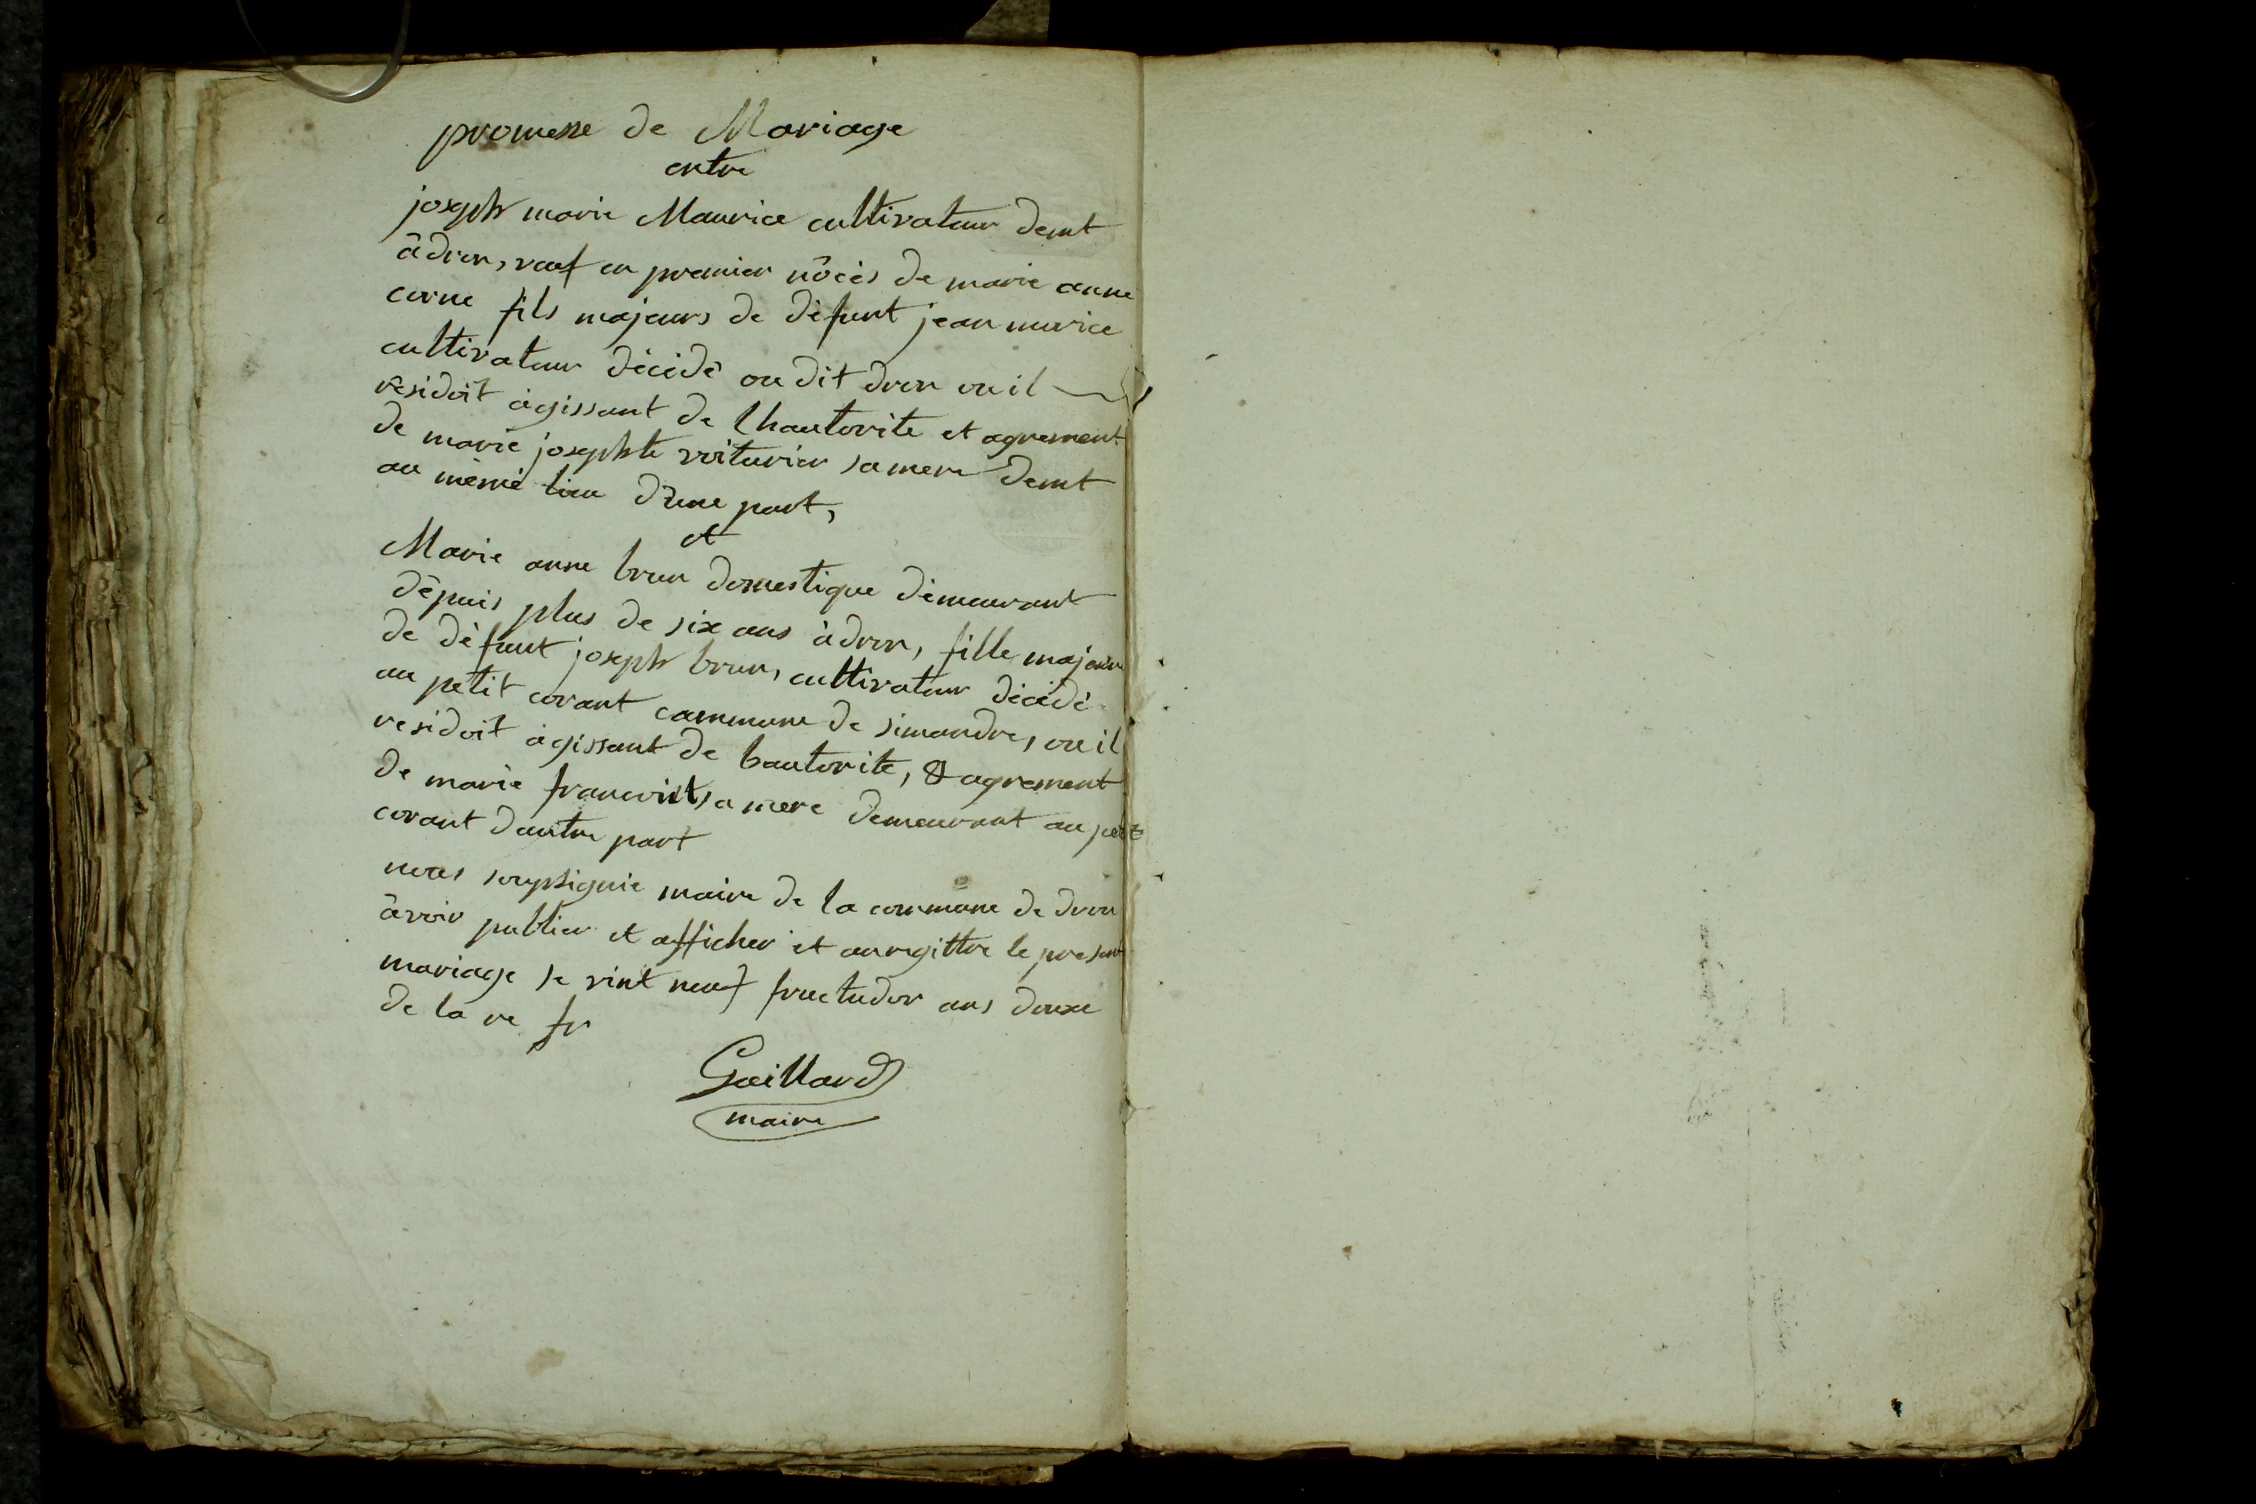 promesse de Mariage
entre
joseph marie Maurice cultivateur demt
à dron, veuf en premier nôcès de marie anne
corne fils majeurs de dèfunt jean murice
cultivateur dècèdè ou dit dron ou il
rèsidoit àgissant de lhautorite et agrement
de marie josephte voiturier sa mere demt
au mème lieu d'une part,
et
Marie anne brun domestique dèmeurant
dèpuis plus de six ans à dron, fille majeure
de dèfunt joseph brun, cultivateur dècèdè
au petit corant commune de simandre, ou il
residoit àgissant de hautorite, & agrement
de marie sa mere demeurant au petit
corant dautre part
nous soupsignie maire de la commune de dron
àvoir publier et afficher et anregittre le present
mariage le vint neuf fructudor ans douxe
de la re fr
Gaillard
maire